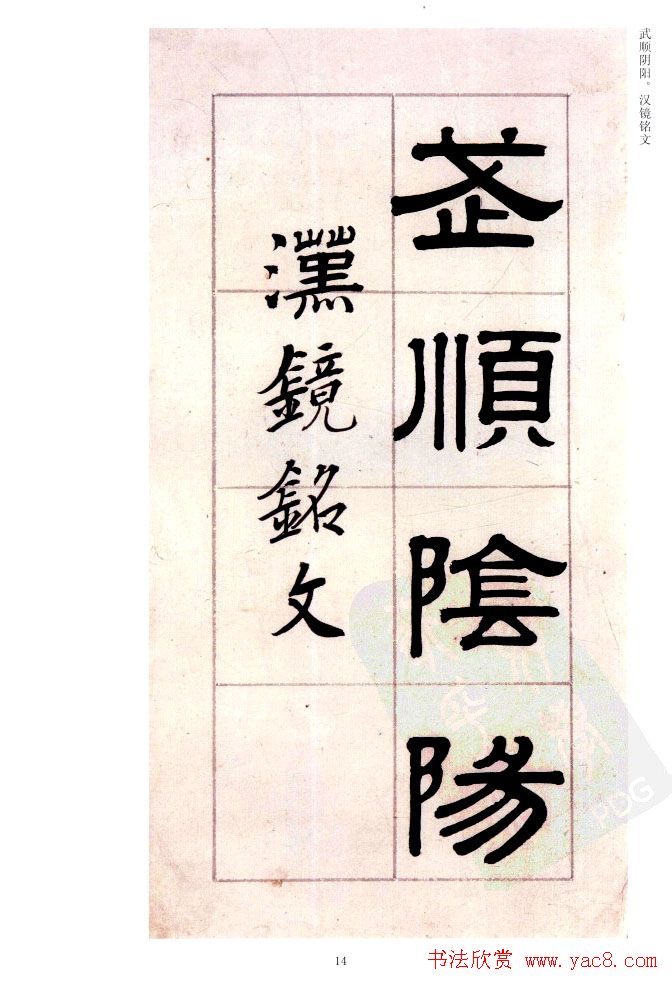 武順陰陽
漢鏡銘文
武顺阴阳。汉镜铭文
14
书法欣赏 www.yac8.com
PDG